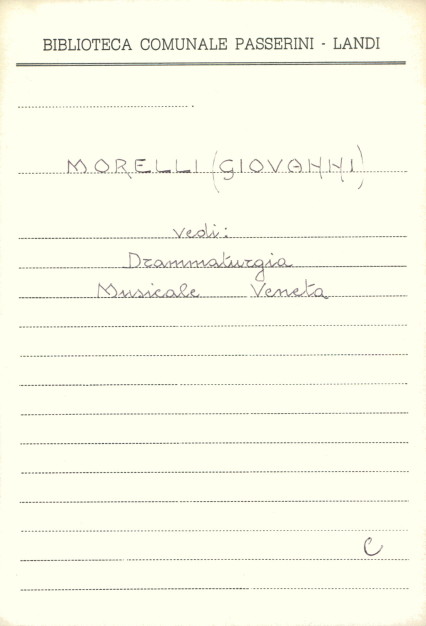 BIBLIOTECA COMUNALE PASSERINI - LANDI
MORELLI (GIOVANNI)
vedi:
Drammaturgia
Musicale Veneta
C